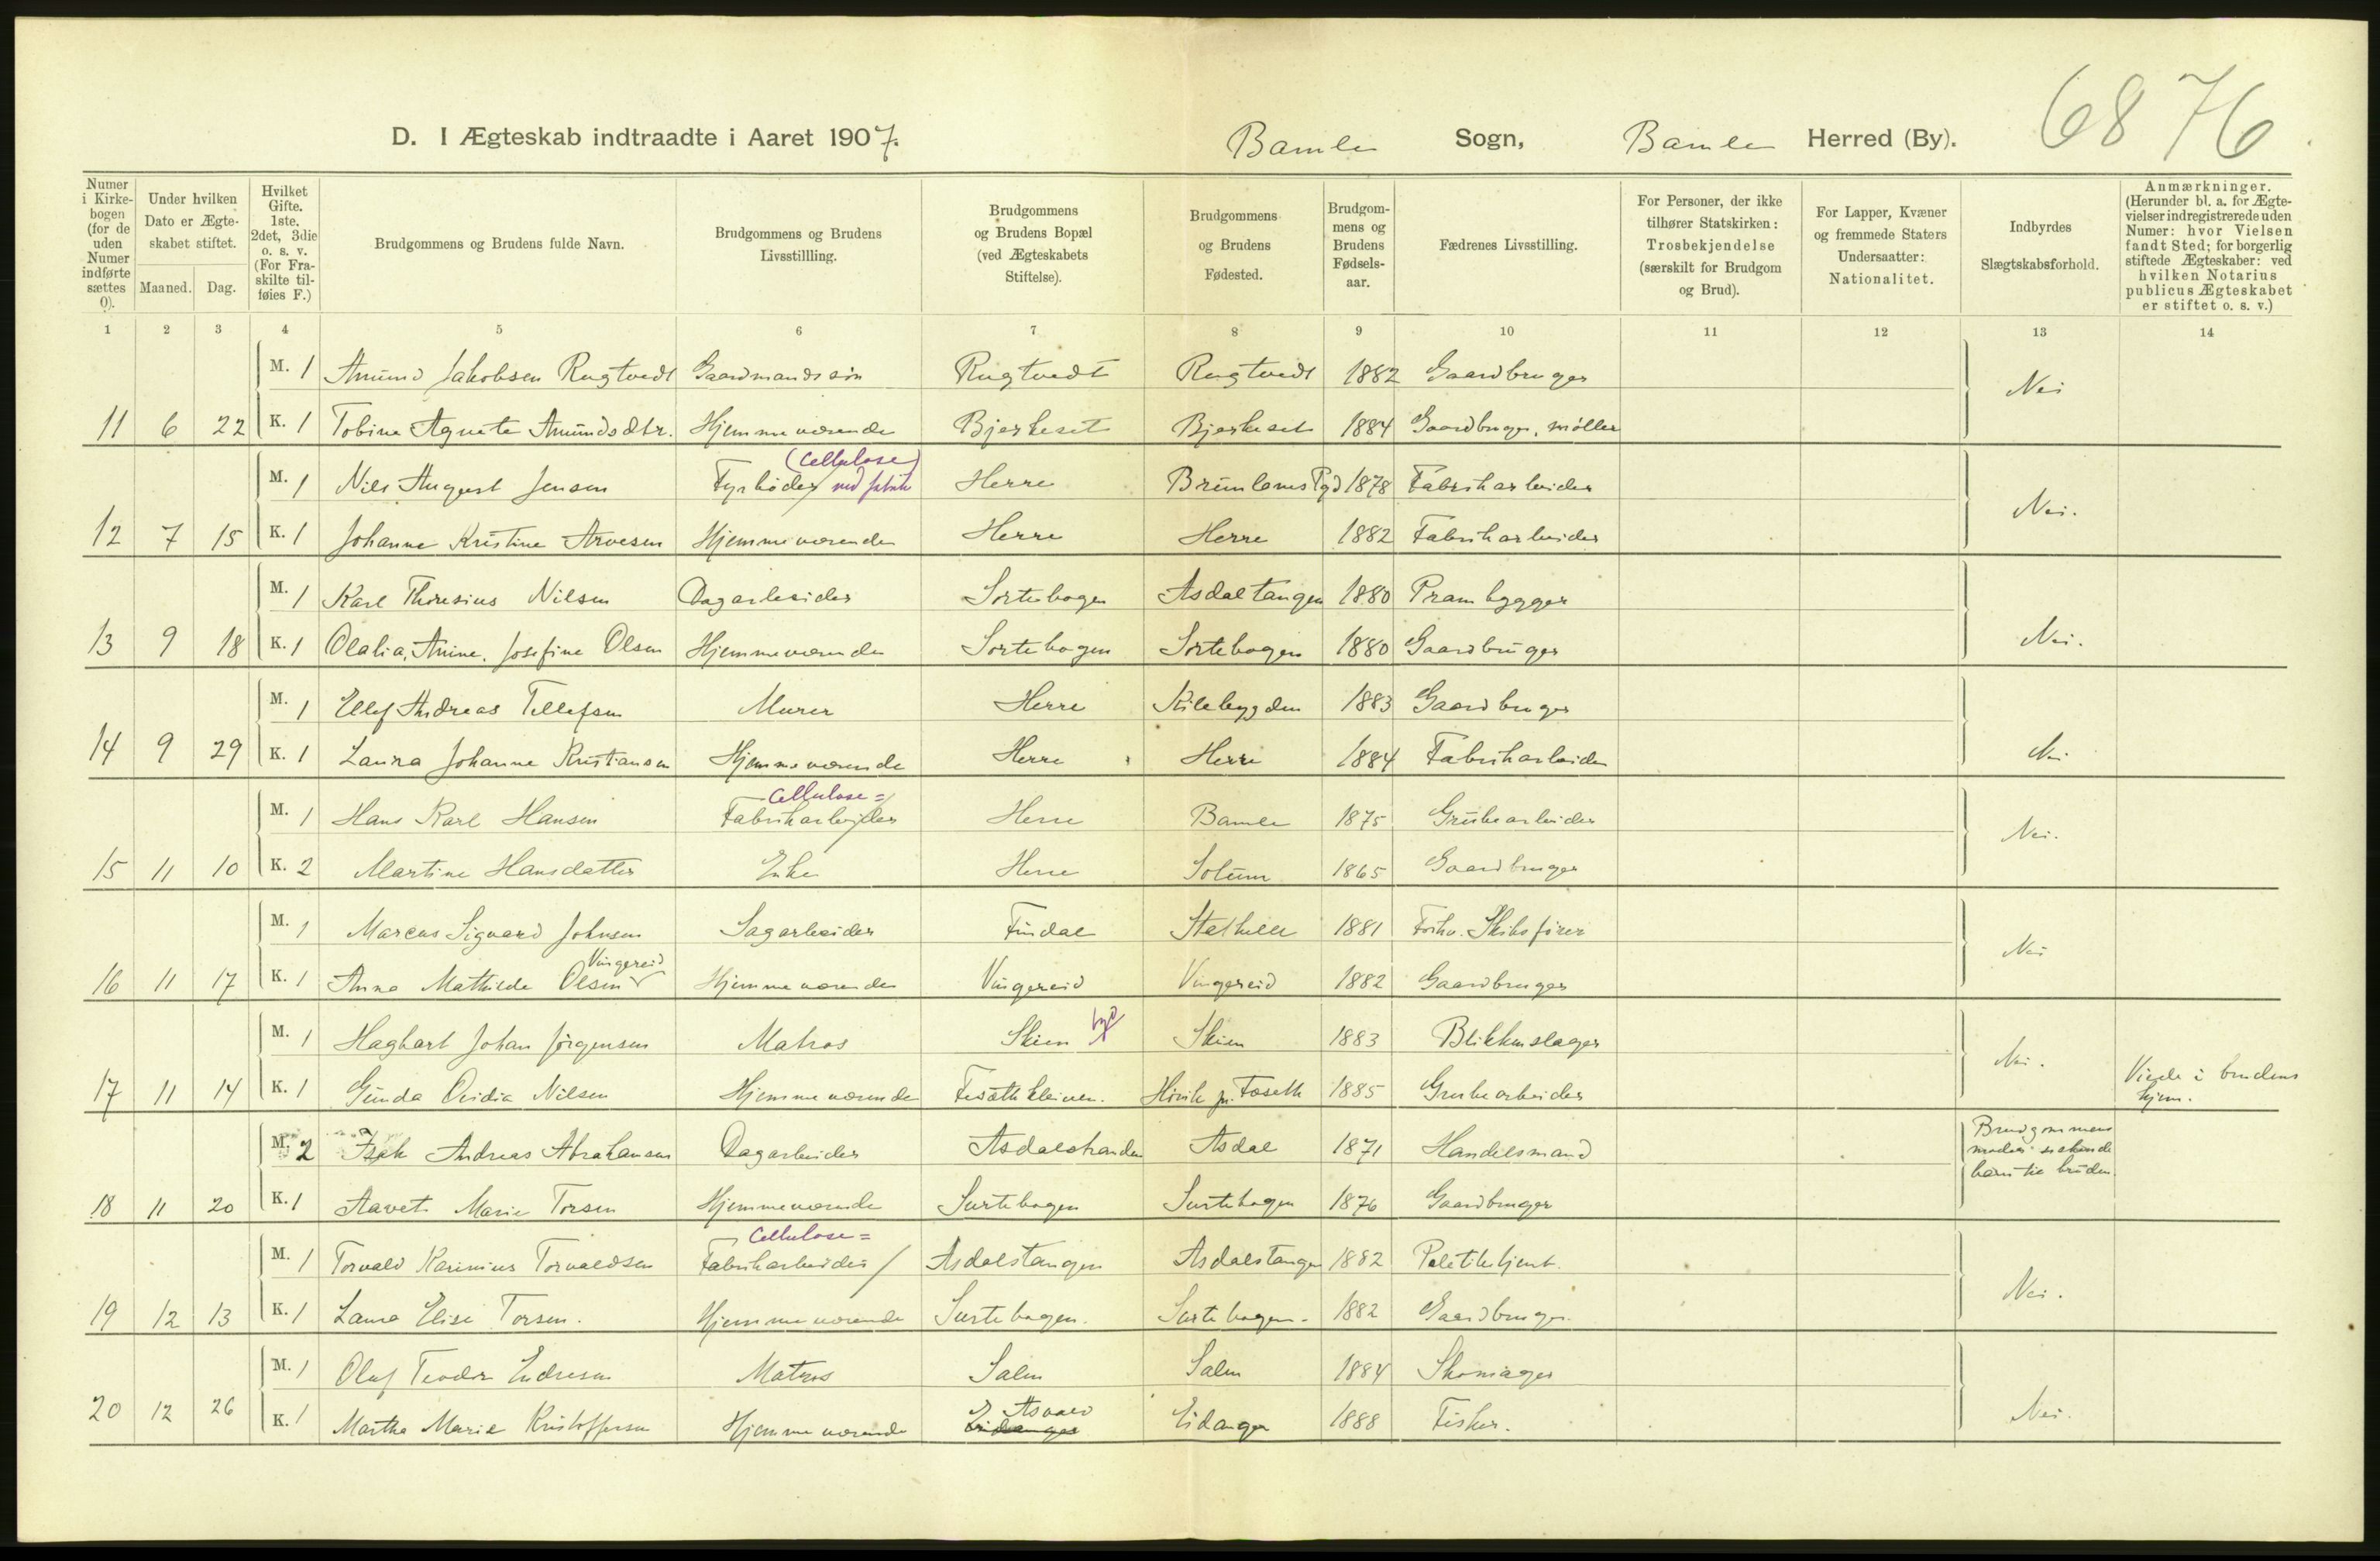 6876
D. I Ægteskab indtraadte i Aaret 1907. Bamle Sogn, Bamle Herred (By).
Numer i Kirke- bogen (for de uden Numer indførte sættes 0).
Under hvilken Dato er Ægte- skabet stiftet.
Maaned. Dag.
Hvilket Gifte. 1ste, 2det, 3die o. s. v. (For Fra- skilte til- føies F.)
Brudgommens og Brudens fulde Navn.
Brudgommens og Brudens Livsstillling.
Brudgommens og Brudens Bopæl (ved Ægteskabets Stiftelse).
Brudgommens og Brudens Fødested.
Brudgom- mens og Brudens Fødsels- aar.
Fædrenes Livsstilling.
For Personer, der ikke tilhører Statskirken: Trosbekjendelse (særskilt for Brudgom og Brud).
For Lapper, Kvæner og fremmede Staters Undersaatter: Nationalitet.
Indbyrdes Slægtskabsforhold.
Anmærkninger. (Herunder bl. a. for Ægte- vielser indregistrerede uden Numer: hvor Vielsen fandt Sted; for borgerlig stiftede Ægteskaber: ved hvilken Notarius publicus Ægteskabet er stiftet o. s. v.)
1 2 3 4 5 6 7 8 9 10 11 12 13 14
M. 1 Amund Jakobsen Rugtvedt Gaardmandssøn Rugtvedt Rugtvedt 1882 Gaardbruger Nei
11 6 22 K. 1 Tobine Agnete Amundsdtr. Hjemmeværende Bjerkeset Bjerkeset 1884 Gaardbruger, møller
(Cellulose)
M. 1 Nils August Jensen Fyrbøder ved fabrik Herre Brunlanes Pgd 1878 Fabrikarbeider Nei.
12 7 15 K. 1 Johanne Kristine Arvesen Hjemmeværende Herre Herre 1882 Fabrikarbeider
M. 1 Karl Thoresius Nilsen Dagarbeider Sortebogen Asdaltangen 1880 Prambygger
13 9 18 K. 1 Olalia, Anine, Josefine Olsen Hjemmeværende Sortebogen Sortebogen 1880 Gaardbruger Nei.
M. 1 Ellef Andreas Tellefsen Murer Herre Kilebygden 1883 Gaardbruger
14 9 29 K. 1 Laura Johanne Kristiansen Hjemmeværende Herre Herre 1884 Fabrikarbeider Nei
Cellulose=
M. 1 Hans Karl Hansen Fabrikarbeider Herre Bamle 1875 Grubearbeider Nei.
15 11 10 K. 2 Martine Hansdatter Enke Herre Solum 1865 Gaardbruger
M. 1 Marcus Sigvard Johnsen Sagarbeider Findal Stathelle 1881 Forhv. Skibsfører Nei
Vingereid
16 11 17 K. 1 Anna Mathilde Olsen Hjemmeværende Vingereid Vingereid 1882 Gaardbruger
M. 1 Hagbart Johan Jørgensen Matros Skien by Skien 1883 Blikkenslager Nei.
17 11 14 K. 1 Gunda Ovidia Nilsen Hjemmeværende Fosæthkleiven. Hovik pr. Foseth 1885 Grubearbeider Viede i brudens hjem.
M. 2 Isak Andreas Abrahansen Dagarbeider Asdalstranden Asdal 1871 Handelsmand Brudgommens moder søskendebarn til bruden
18 11 20 K. 1 Aavet Marie Torsen Hjemmeværende Surtebogen Surtebogen 1876 Gaardbruger
Cellulose=
M. 1 Torvald Karinius Torvaldsen Fabrikarbeider Asdalstangen Asdalstangen 1882 Politibetjent.
19 12 13 K. 1 Laura Elise Torsen. Hjemmeværende Surtebogen. Surtebogen. 1882 Gaardbruger. Nei.
M. 1 Oluf Teodor Endresen Matros Salen Salen 1884 Skomager
20 12 26 K. 1 Martha Marie Kristoffersen Hjemmeværende Eidanger Asvald Eidanger 1888 Fisker. Nei.